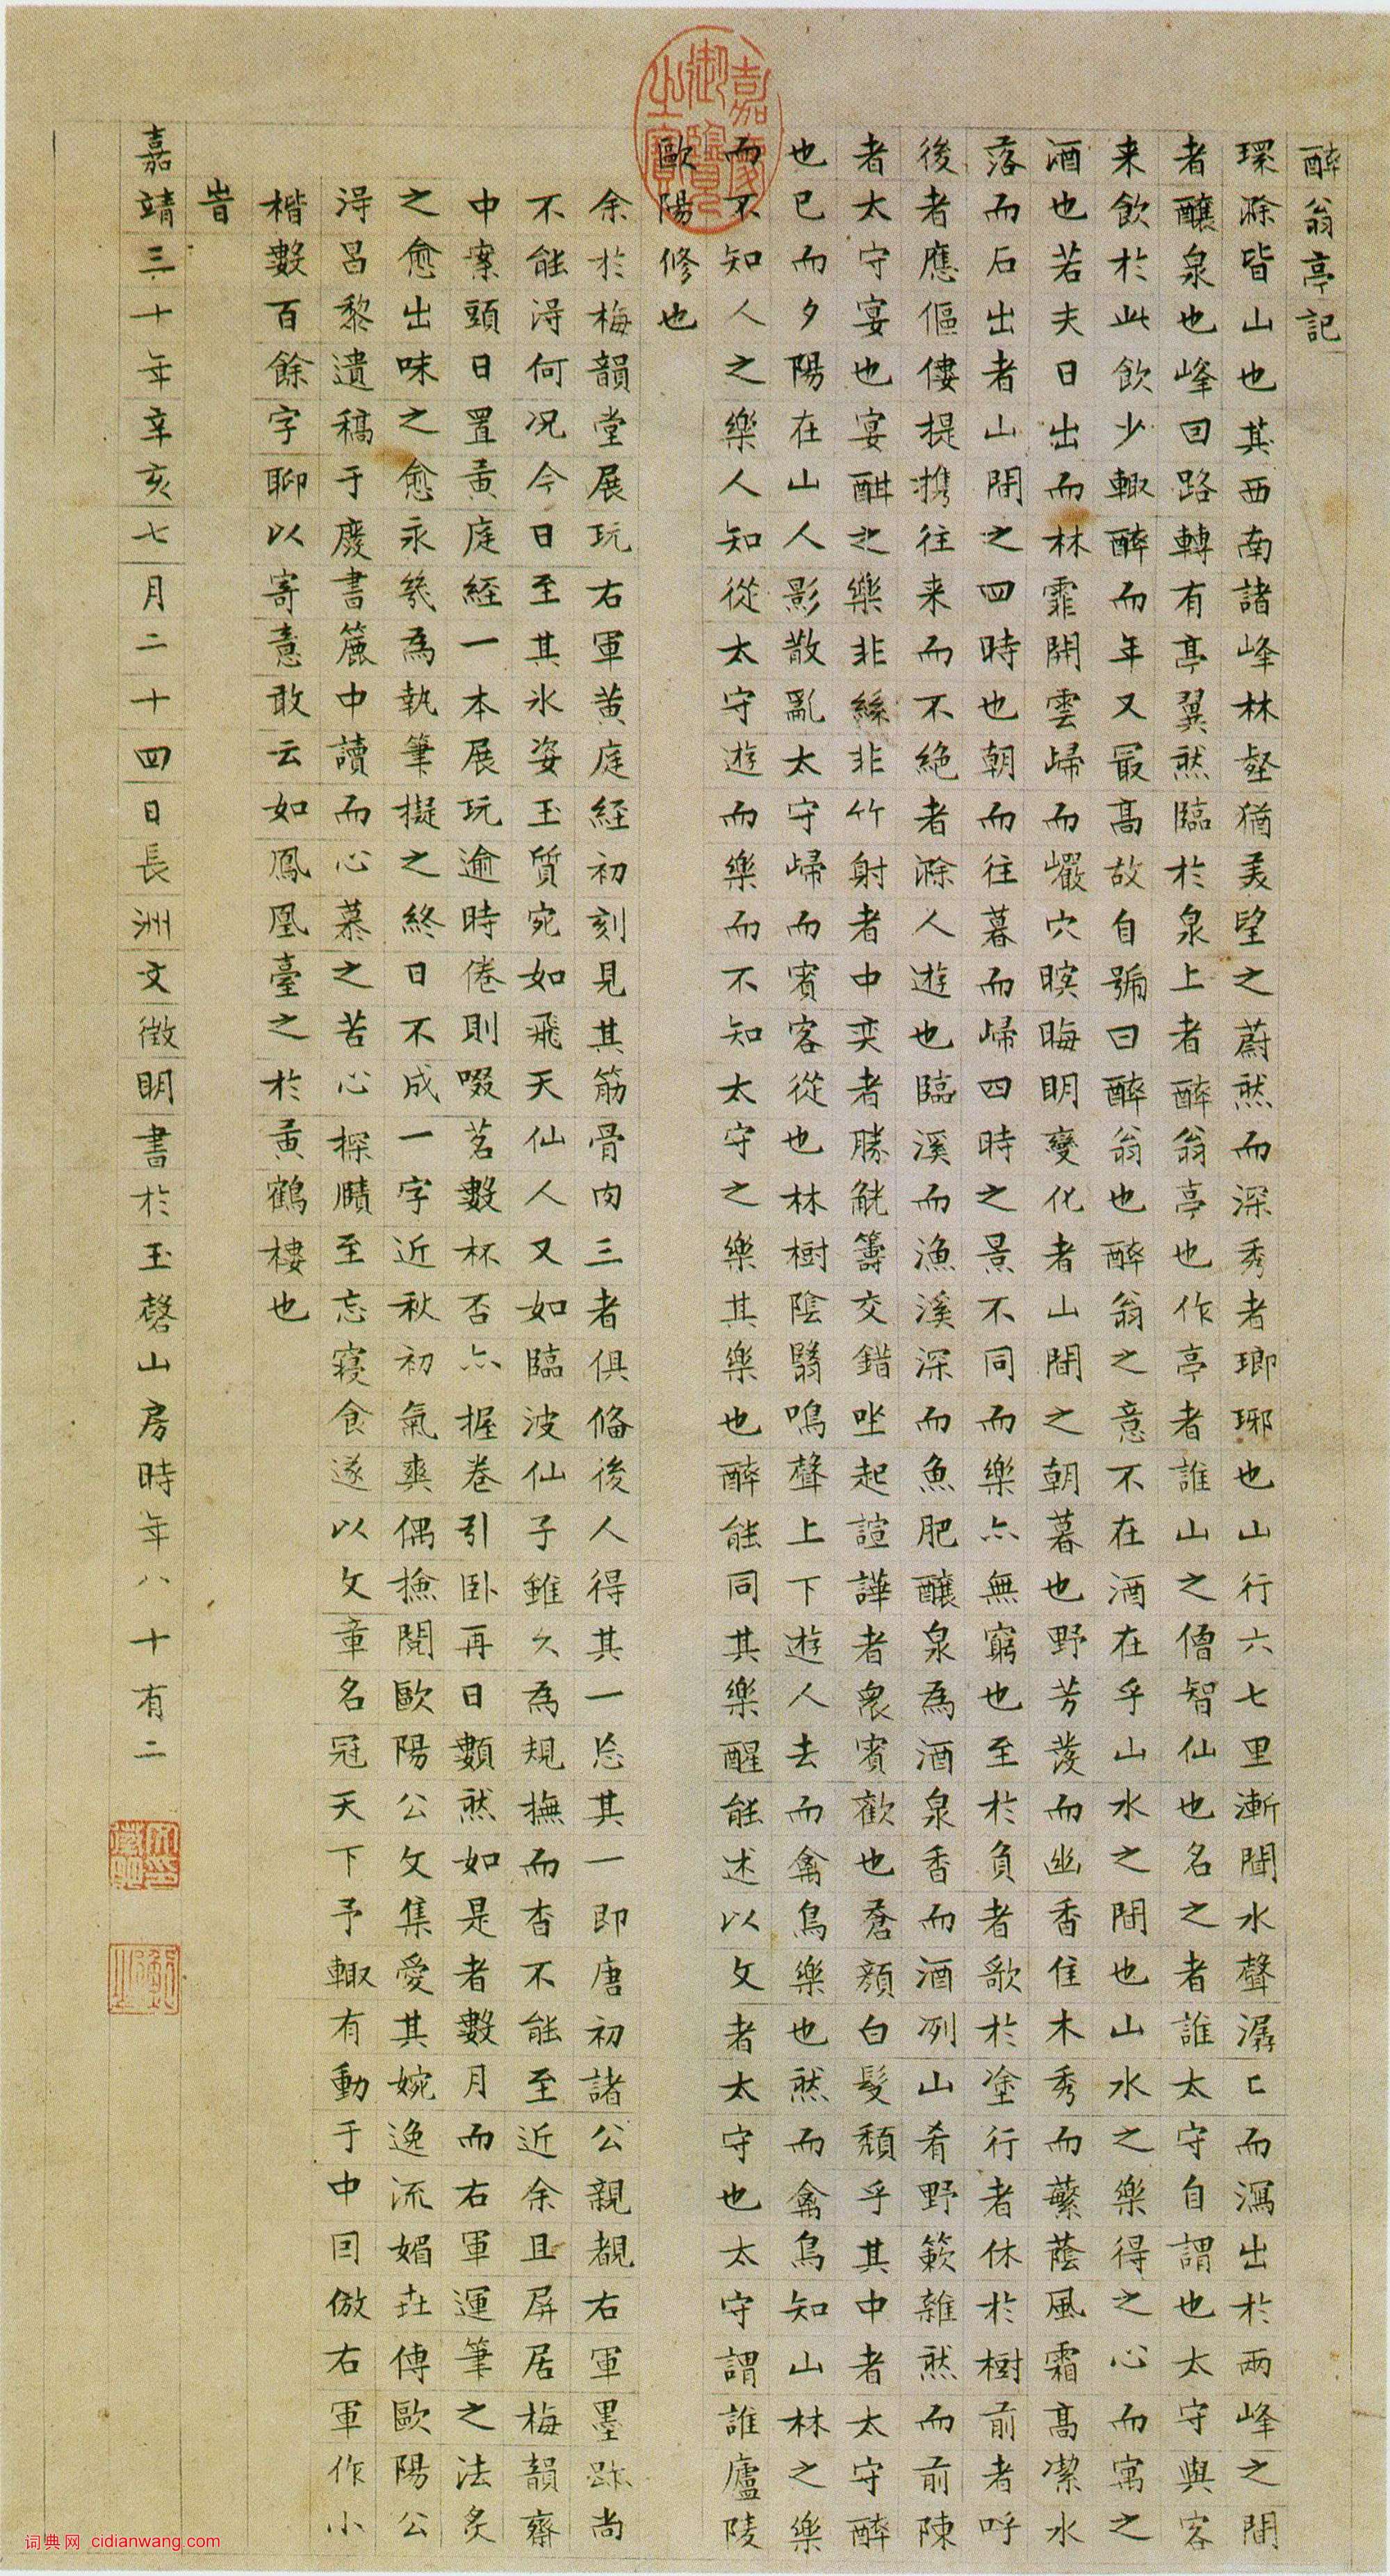 醉翁亭記
環滁皆山也其西南諸峰林壑猶美望之蔚然而深秀者瑯琊也山行六七里漸聞水聲潺〻而瀉出於兩峰之間
者釀泉也峰回路轉有亭翼然臨於泉上者醉翁亭也作亭者誰山之僧智仙也名之者誰太守自謂也太守與客
来飲於此飲少輒醉而年又最高故自號曰醉翁也醉翁之意不在酒在乎山水之間也山水之樂得之心而寓之
酒也若夫日出而林霏開雲歸而巖穴暝晦明變化者山間之朝暮也野芳發而幽香佳木秀而蘩蔭風霜高潔水
落而石出者山間之四時也朝而往暮而歸四時之景不同而樂亦無窮也至於負者歌於塗行者休於樹前者呼
後者應傴僂提攜往来而不絶者滁人遊也臨溪而漁溪深而魚肥釀泉為酒泉香而酒冽山肴野簌雜然而前陳
者太守宴也宴酣之樂非絲非竹射者中奕者勝觥籌交錯坐起諠譁者衆賓歡也蒼顏白髮頹乎其中者太守醉
也已而夕陽在山人影散亂太守歸而賓客從也林樹陰翳鳴聲上下遊人去而禽鳥樂也然而禽鳥知山林之樂
而不知人之樂人知從太守遊而樂而不知太守之樂其樂也醉能同其樂醒能述以文者太守也太守謂誰廬陵
歐陽修也
余於梅韻堂展玩右軍黄庭經初刻見其筋骨肉三者俱俻後人得其一忘其一即唐初諸公親覩右軍墨跡尚
不能淂何况今日至其氷姿玉質宛如飛天仙人又如臨波仙子雖久為規撫而杳不能至近余且屏居梅韻齋
中案頭日置黄庭經一本展玩逾時倦則啜茗數杯否亦握卷引卧再日數然如是者數月而右軍運筆之法炙
之愈出味之愈永幾為執筆擬之終日不成一字近秋初氣爽偶撿閲歐陽公文集愛其婉逸流媚世傳歐陽公
淂昌黎遺稿于廢書簏中讀而心慕之苦心探賾至忘寢食遂以文章名冠天下予輒有動于中囙倣右軍作小
楷數百餘字聊以寄意敢云如鳳凰臺之於黄鶴樓也
旹
嘉靖三十年辛亥七月二十四日長洲文徵明書於玉磬山房時年八十有二
嘉慶御覽之寶
词典网 cidianwang.com